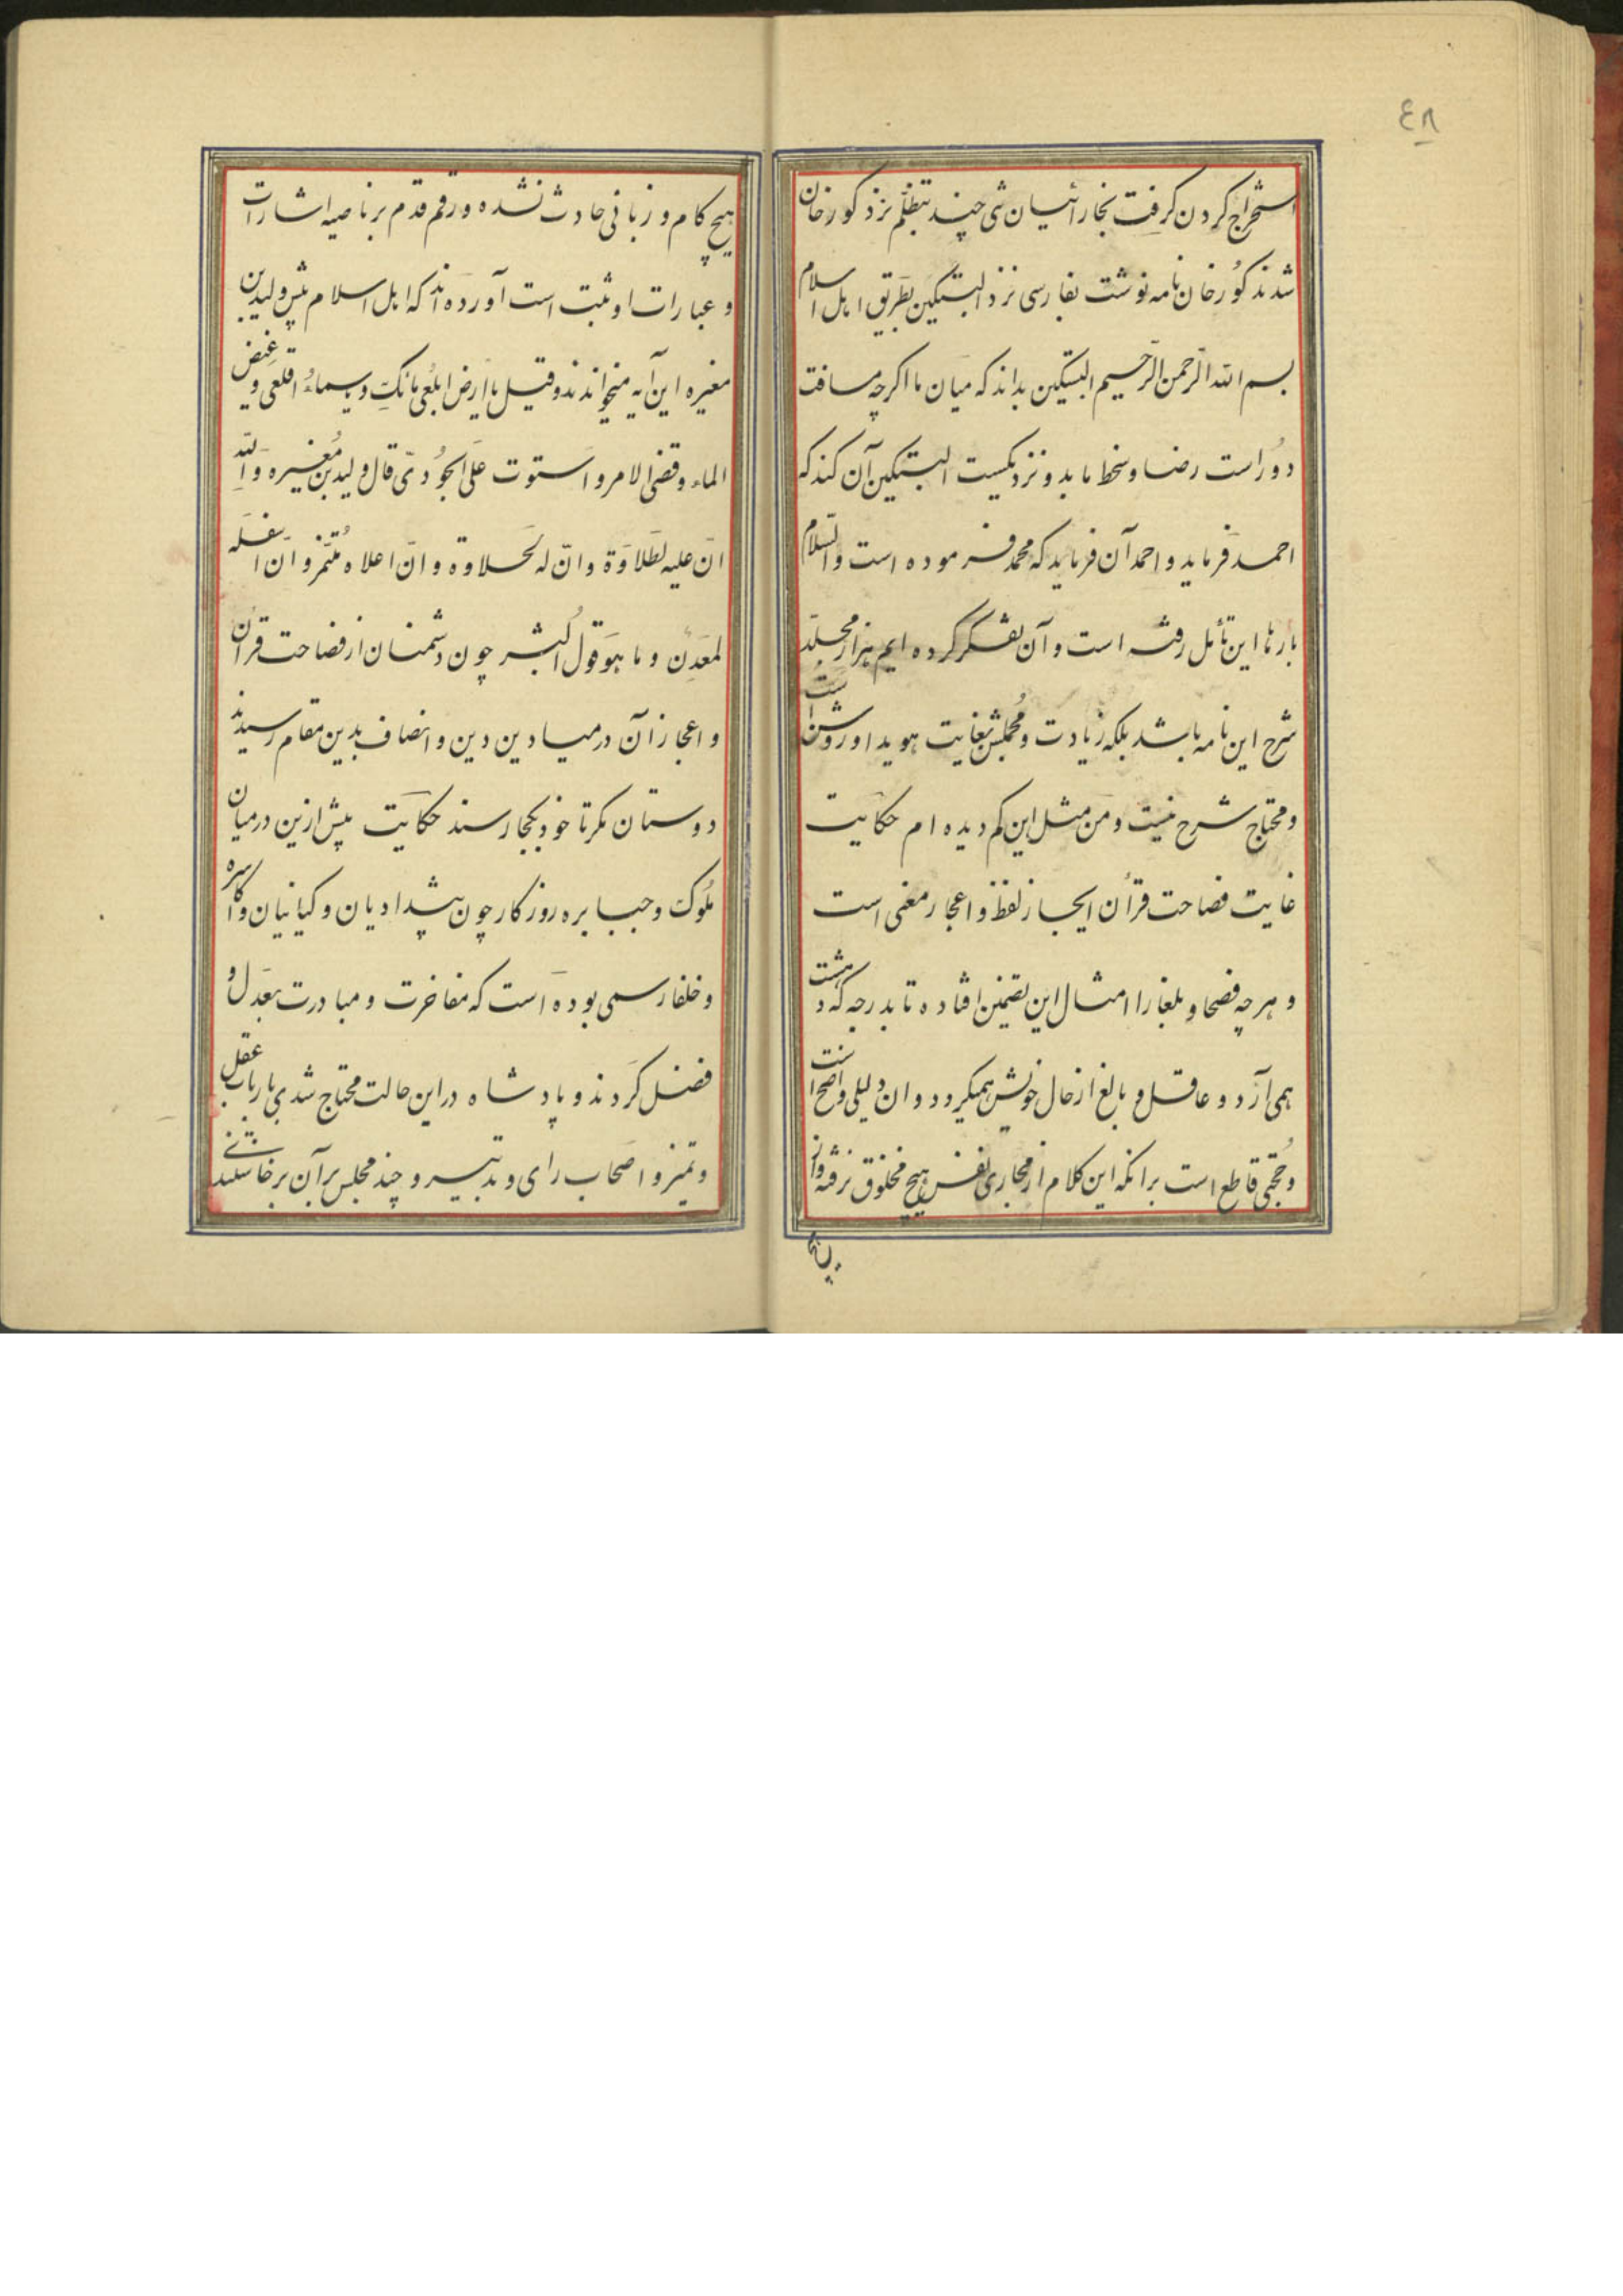 ٤٨
استخراج کردن کرفت بخارائیان تنی چند بتظلّم نزد کورخان
شدند کورخان نامه نوشت بفارسی نزد البتکین بطریق اهل اسلام
بسم الله الرّحمن الرّحیم البتکین بداند که میان ما اکرچه مسافت
دور است رضا و سخط ما بدو نزدیکست البتکین آن کند که
احمد فرماید و احمد آن فرماید که محمد فرموده است والسّلام
بارها این تأمل رفته است و آن تفکر کرده ایم هزار مجلّد
شرح این نامه باشد بلکه زیادت و مُجملش بغایت هویدا و روشن است
و محتاج شرح نیست و من مثل این کم دیده ام حکایت
غایت فصاحت قرآن ایجاز لفظ و اعجاز معنی است
و هرچه فصحا و بلغا را امثال این تضمین افتاده تا بدرجه که دهشت
همی آرد و عاقل و بالغ از حال خویش همیکردد و ان دلیلی واضح است
و حُجّتی قاطع است برانکه این کلام از مجاری نفس هیچ مخلوق نرفته و از
هیچ
هیچ کام و زبانی حادث نشده و رقم قدم بر ناصیه اشارات
و عبارات او ثبت است آورده اند که اهل اسلام پیش ولید بن
مغیره این آیه میخواندند و قیل یا ارض ابلعی مائک و یسماءُ اقلعی و غیض
الماء و قضی الامر و استوت علی الجودیّ قال ولید بن مُغیره وَاللّه
انّ علیه لطلاوة و انّ له لحلاوة و انّ اعلاه مُثمر و انّ اسفله
لمعدن و ما هو قول البشر چون دشمنان از فصاحت قرآن
و اعجاز آن در میادین دین و انصاف بدین مقام رسیدند
دوستان مکر تا خود بکجا رسند حکایت پیش ازین در میان
ملوک و جبابره روزکار چون پیشدادیان و کیانیان و اکاسره
و خلفا رسمی بوده است که مفاخرت و مبادرت بعدل و
فضل کردند و پادشاه در این حالت محتاج شدی بارباب عقل
و تمیز و اصحاب رای و تدبیر و چند مجلس بر آن برخاستندی